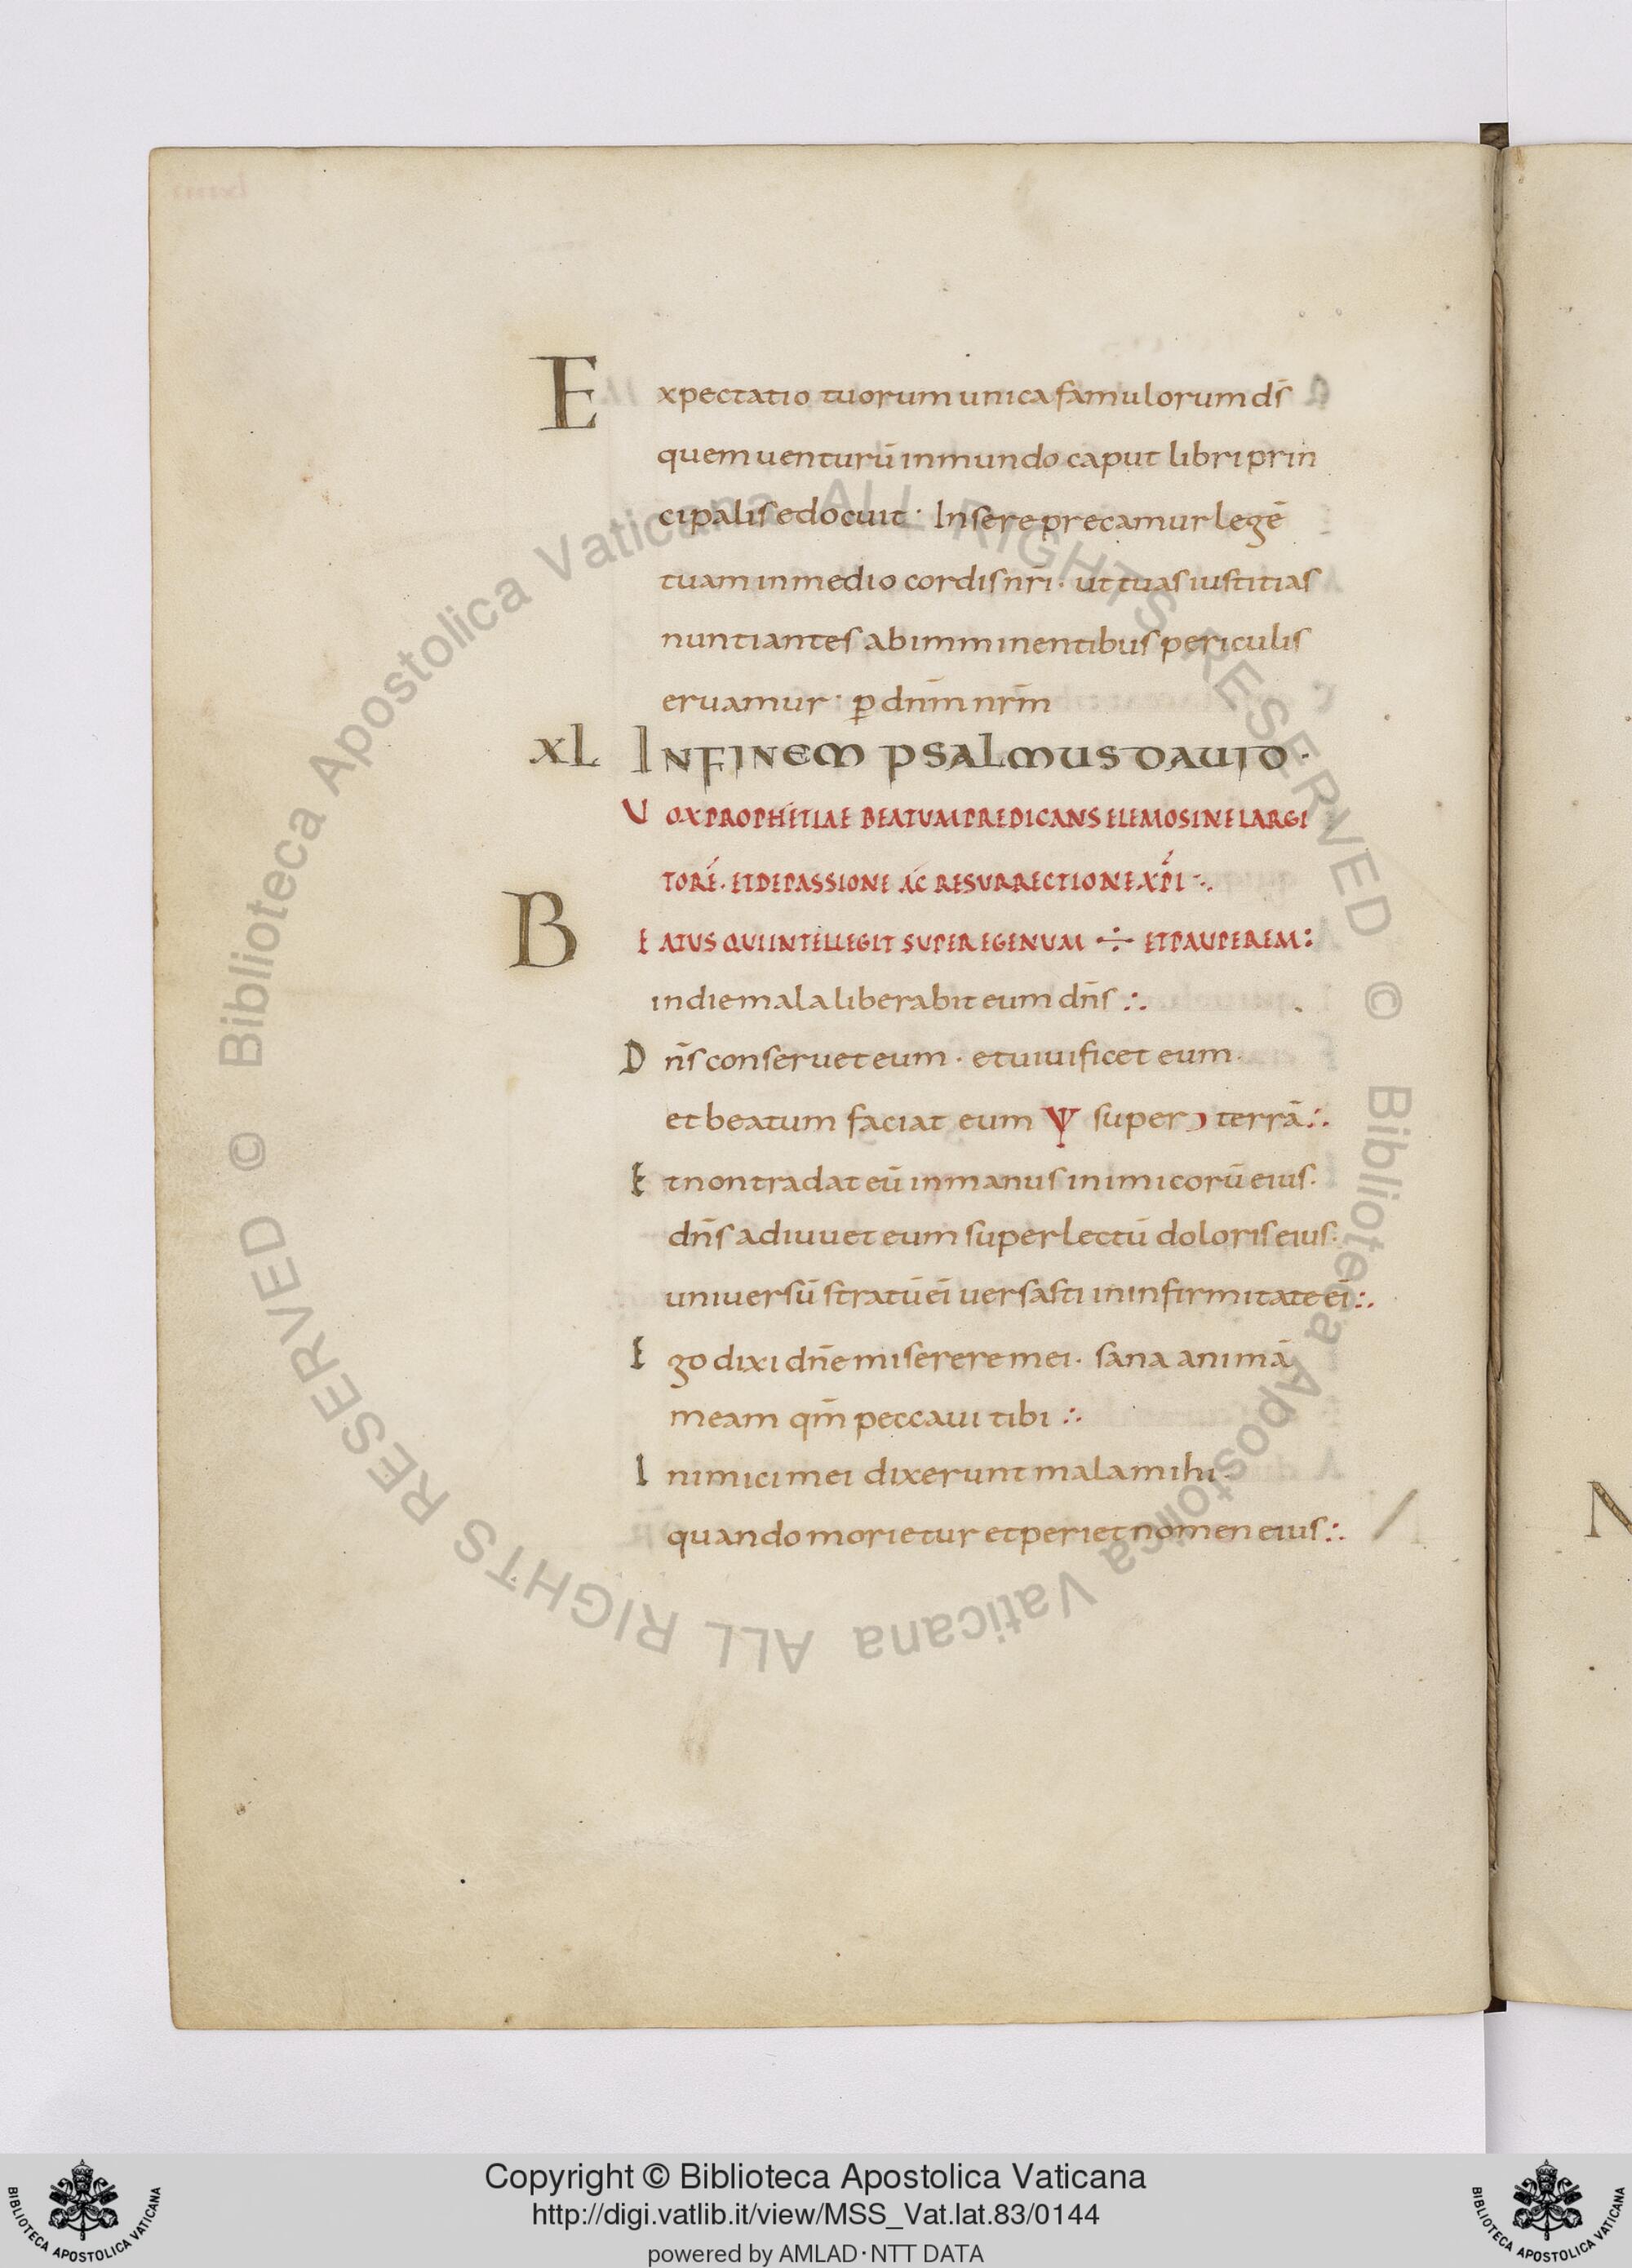 Expectatio tuorum unica famulorum ds̄
quem uenturū in mundo caput libri prin
cipalis edocuit · Insere precamur legē
tuam in medio cordis nr̄i · ut tuas iustitias
nuntiantes ab imminentibus periculis
eruamur · p̱ dnm̄ nrm̄
XL IN FINEM PSALMUS DAUID ·
VOX PROPHETIAE BEATUM PREDICANS ELEMOSINE LARGI
TORĒ · ET DE PASSIONE AC RESURRECTIONE XPI ∴
BEATUS QUI INTELLEGIT SUPER EGENUM ÷ ET PAUPEREM :
in die mala liberabit eum dn̄s ∴
Dn̄s conseruet eum · et uiuificet eum ·
et beatum faciat eum Ѱ super ͻ terrā ∴
Et non tradat eū in manus inimicorū eius ·
dn̄s adiuuet eum super lectū doloris eius ·
uniuersū stratū eī uersasti in infirmitate eī ∴
Ego dixi dn̄e miserere mei · sana animā
meam qm̄ peccaui tibi ∴
Inimici mei dixerunt mala mihi ·
quando morietur et periet nomen eius ∴
N
© Biblioteca Apostolica Vaticana ALL RIGHTS RESERVED © Biblioteca Apostolica Vaticana ALL RIGHTS RESERVED
Copyright © Biblioteca Apostolica Vaticana
http://digi.vatlib.it/view/MSS_Vat.lat.83/0144
powered by AMLAD·NTT DATA
BIBLIOTECA APOSTOLICA VATICANA
BIBLIOTECA APOSTOLICA VATICANA